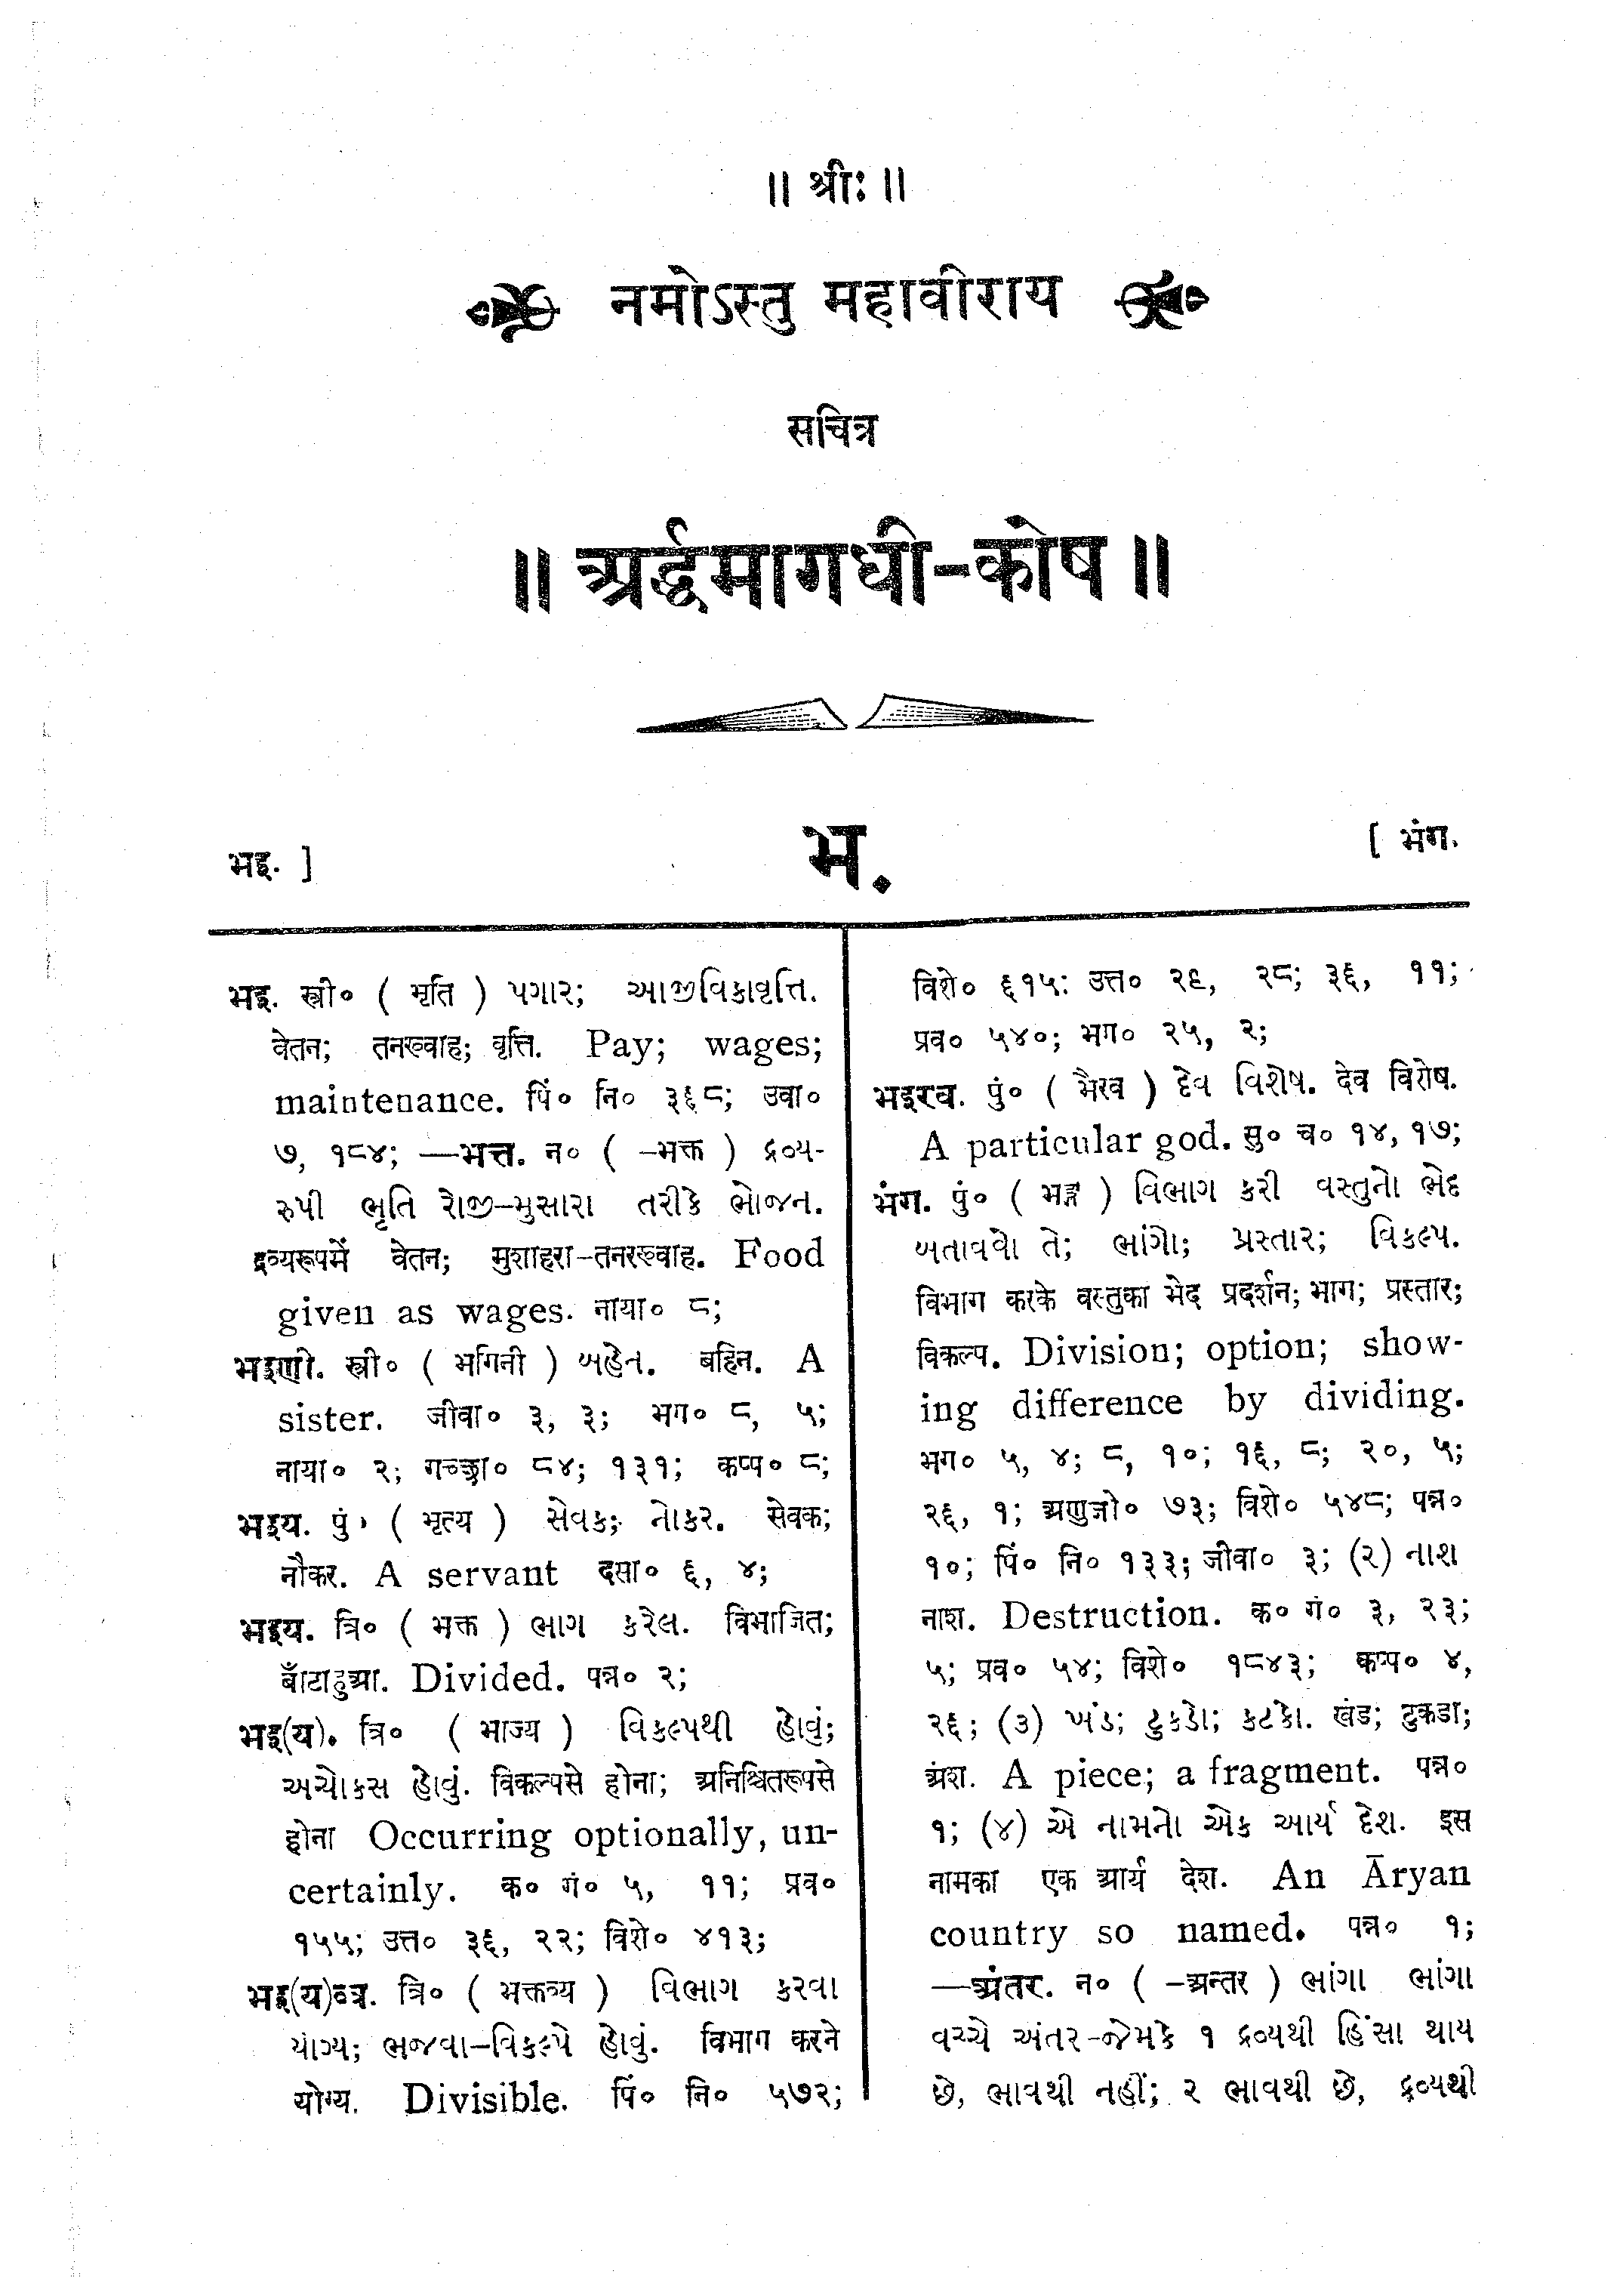 ॥ श्रीः ॥
नमोऽस्तु महावीराय
सचित्र
॥ अर्द्धमागधी-कोष ॥
भइ. ]
भ.
[ भंग.
भइ. स्त्री० ( भृति ) પગાર; આજીવિકાવૃત્તિ.
वेतन; तनख्वाह; वृत्ति. Pay; wages;
maintenance. पिं० नि० ३६८; उवा०
७, १८४; —भत्त. न० ( -भक्त ) દ્રવ્ય-
રુપી ભૃતિ રોજી-મુસારા તરીકે ભોજન.
द्रव्यरूपमें वेतन; मुशाहरा-तनरख्वाह. Food
given as wages. नाया० ८;
भइणी. स्त्री० ( भगिनी ) બહેન. बहिन. A
sister. जीवा० ३, ३; भग० ८, ५;
नाया० २; गच्छा० ८४; १३१; कप्प० ८;
भइय. पुं० ( भृत्य ) સેવક; નોકર. सेवक;
नौकर. A servant दसा० ६, ४;
भइय. त्रि० ( भक्त ) ભાગ કરેલ. विभाजित;
बाँटाहुआ. Divided. पन्न० २;
भइ(य). त्रि० ( भाज्य ) વિકલ્પથી હોવું;
અચોકસ હોવું. विकल्पसे होना; अनिश्चितरूपसे
होना Occurring optionally, un-
certainly. क० गं० ५, ११; प्रव०
१५५; उत्त० ३६, २२; विशे० ४१३;
भइ(य)व्व. त्रि० ( भक्तव्य ) વિભાગ કરવા
યોગ્ય; ભજવા-વિકલ્પે હોવું. विभाग करने
योग्य. Divisible. पिं० नि० ५७२;
विशे० ६१५: उत्त० २९, २८; ३६, ११;
प्रव० ५४०; भग० २५, २;
भइरव. पुं० ( भैरव ) દેવ વિશેષ. देव विशेष.
A particular god. सु० च० १४, १७;
भंग. पुं० ( भङ्ग ) વિભાગ કરી વસ્તુનો ભેદ
બતાવવો તે; ભાંગો; પ્રસ્તાર; વિકલ્પ.
विभाग करके वस्तुका भेद प्रदर्शन; भाग; प्रस्तार;
विकल्प. Division; option; show-
ing difference by dividing.
भग० ५, ४; ८, १०; १६, ८; २०, ५;
२६, १; अणुजो० ७३; विशे० ५४८; पन्न०
१०; पिं० नि० १३३; जीवा० ३; (२) નાશ
नाश. Destruction. क० गं० ३, २३;
५; प्रव० ५४; विशे० १८४३; कप्प० ४,
२६; (૩) ખંડ; ટુકડો; કટકો. खंड; टुकडा;
अंश. A piece; a fragment. पन्न०
१; (૪) એ નામનો એક આર્ય દેશ. इस
नामका एक आर्य देश. An Āryan
country so named. पन्न० १;
—अंतर. न० ( -अन्तर ) ભાંગા ભાંગા
વચ્ચે અંતર-જેમકે ૧ દ્રવ્યથી હિંસા થાય
છે, ભાવથી નહીં; ૨ ભાવથી છે, દ્રવ્યથી